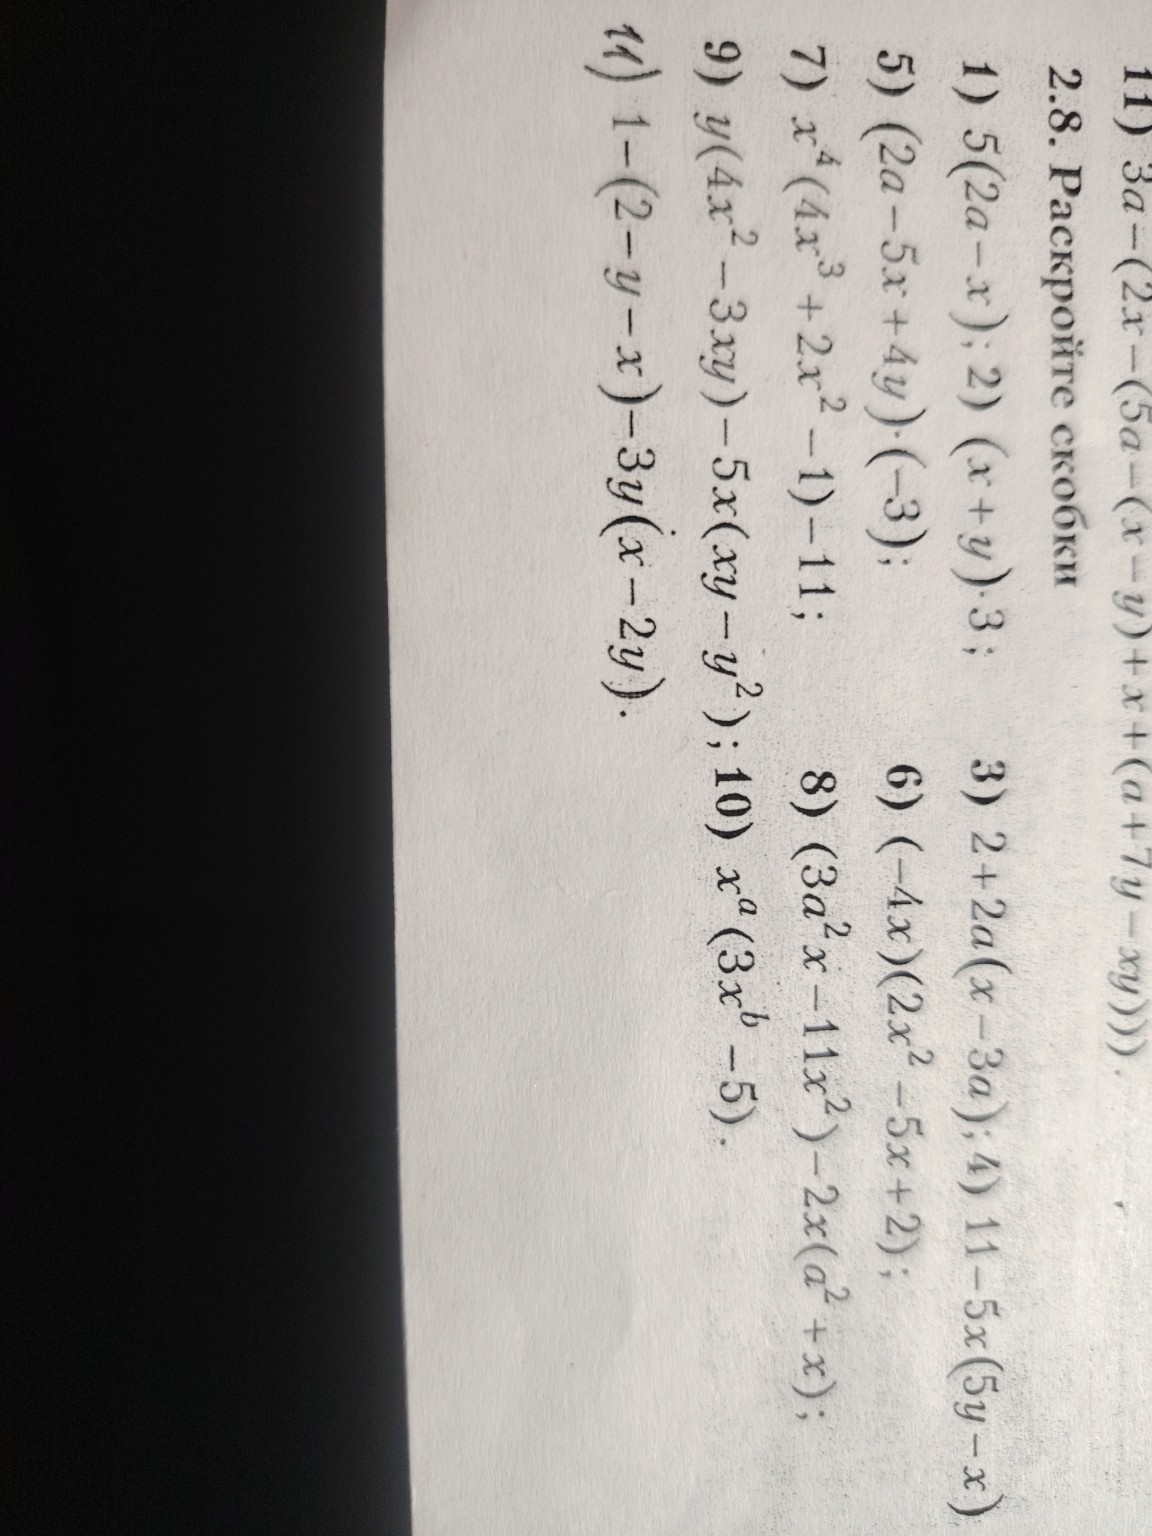 11) 3a−(2x−(5a−(x−y)+x+(a+7y−xy))).
2.8. Раскройте скобки
1) 5(2a−x); 2) (x+y)·3; 3) 2+2a(x−3a); 4) 11−5x(5y−x)
5) (2a−5x+4y)·(−3); 6) (−4x)(2x²−5x+2);
7) x⁴(4x³+2x²−1)−11; 8) (3a²x−11x²)−2x(a²+x);
9) y(4x²−3xy)−5x(xy−y²); 10) xᵃ(3xᵇ−5).
11) 1−(2−y−x)−3y(x−2y).